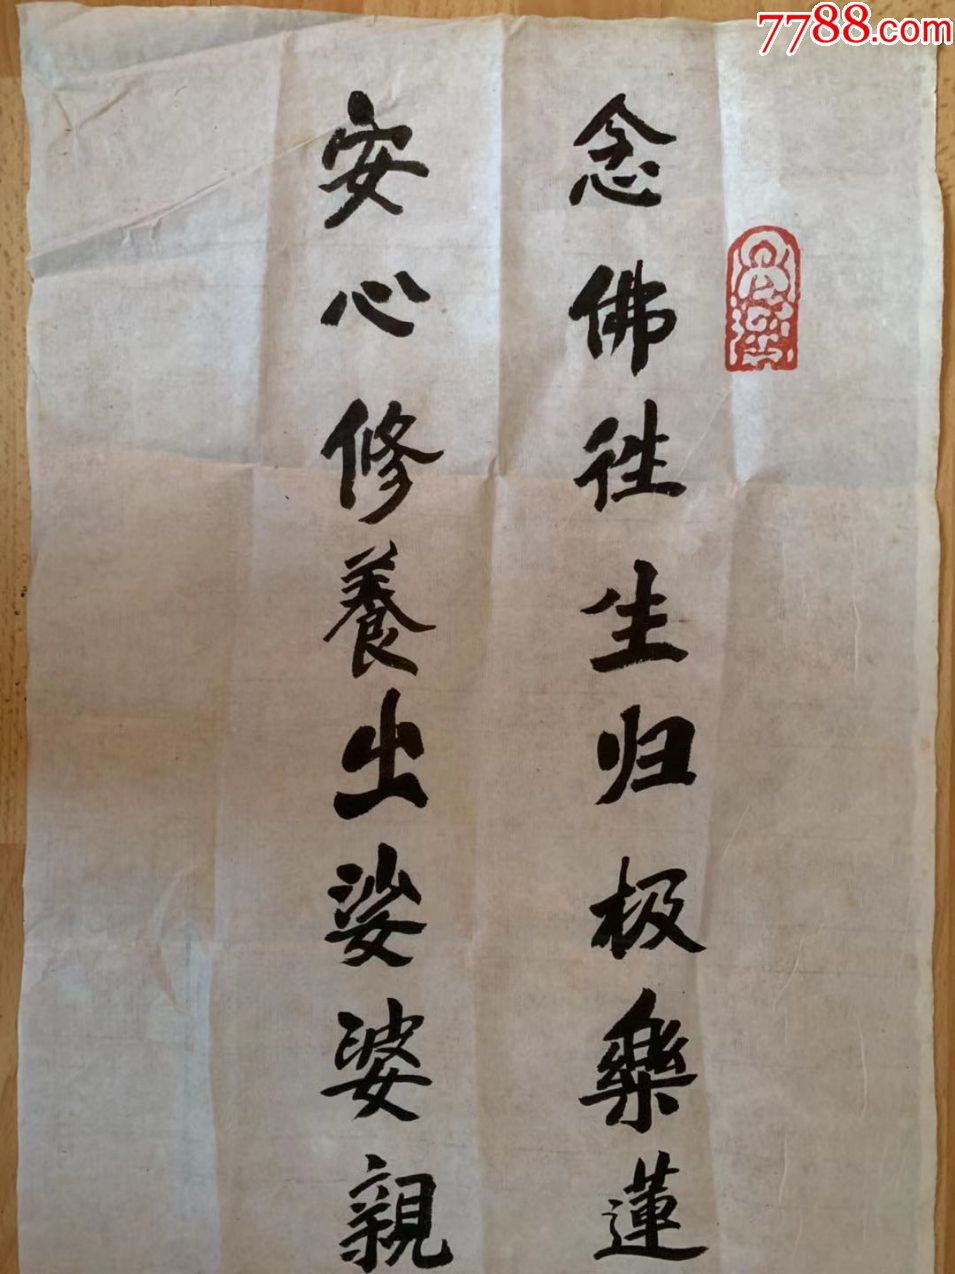 7788.com
念佛往生归极樂蓮
安心修養出娑婆親